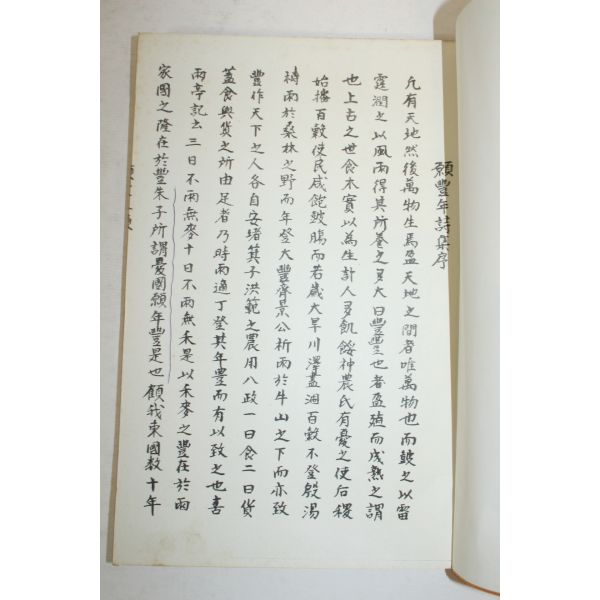 願豐年詩集序
凡有天地然後萬物生焉盈天地之間者唯萬物也而鼓之以雷
霆潤之以風雨得其所養之多大曰豐豐也者盈殖而成熟之謂
也上古之世食木實以為生計人多飢餒神農氏有憂之使后稷
始播百穀使民咸飽鼓腸而若歲大旱川澤盡涸百穀不登殷湯
禱雨於桑林之野而年登大豐齊景公祈雨於牛山之下而亦致
豐作天下之人各自安堵箕子洪範之農用八政一曰食二曰貨
蓋食與貨之所由足者乃時雨適丁登其年豐而有以致之也喜
雨亭記云三日不雨無麥十日不雨無禾是以禾麥之豐在於雨
家國之隆在於豐朱子所謂憂國願年豐是也顧我東國數十年